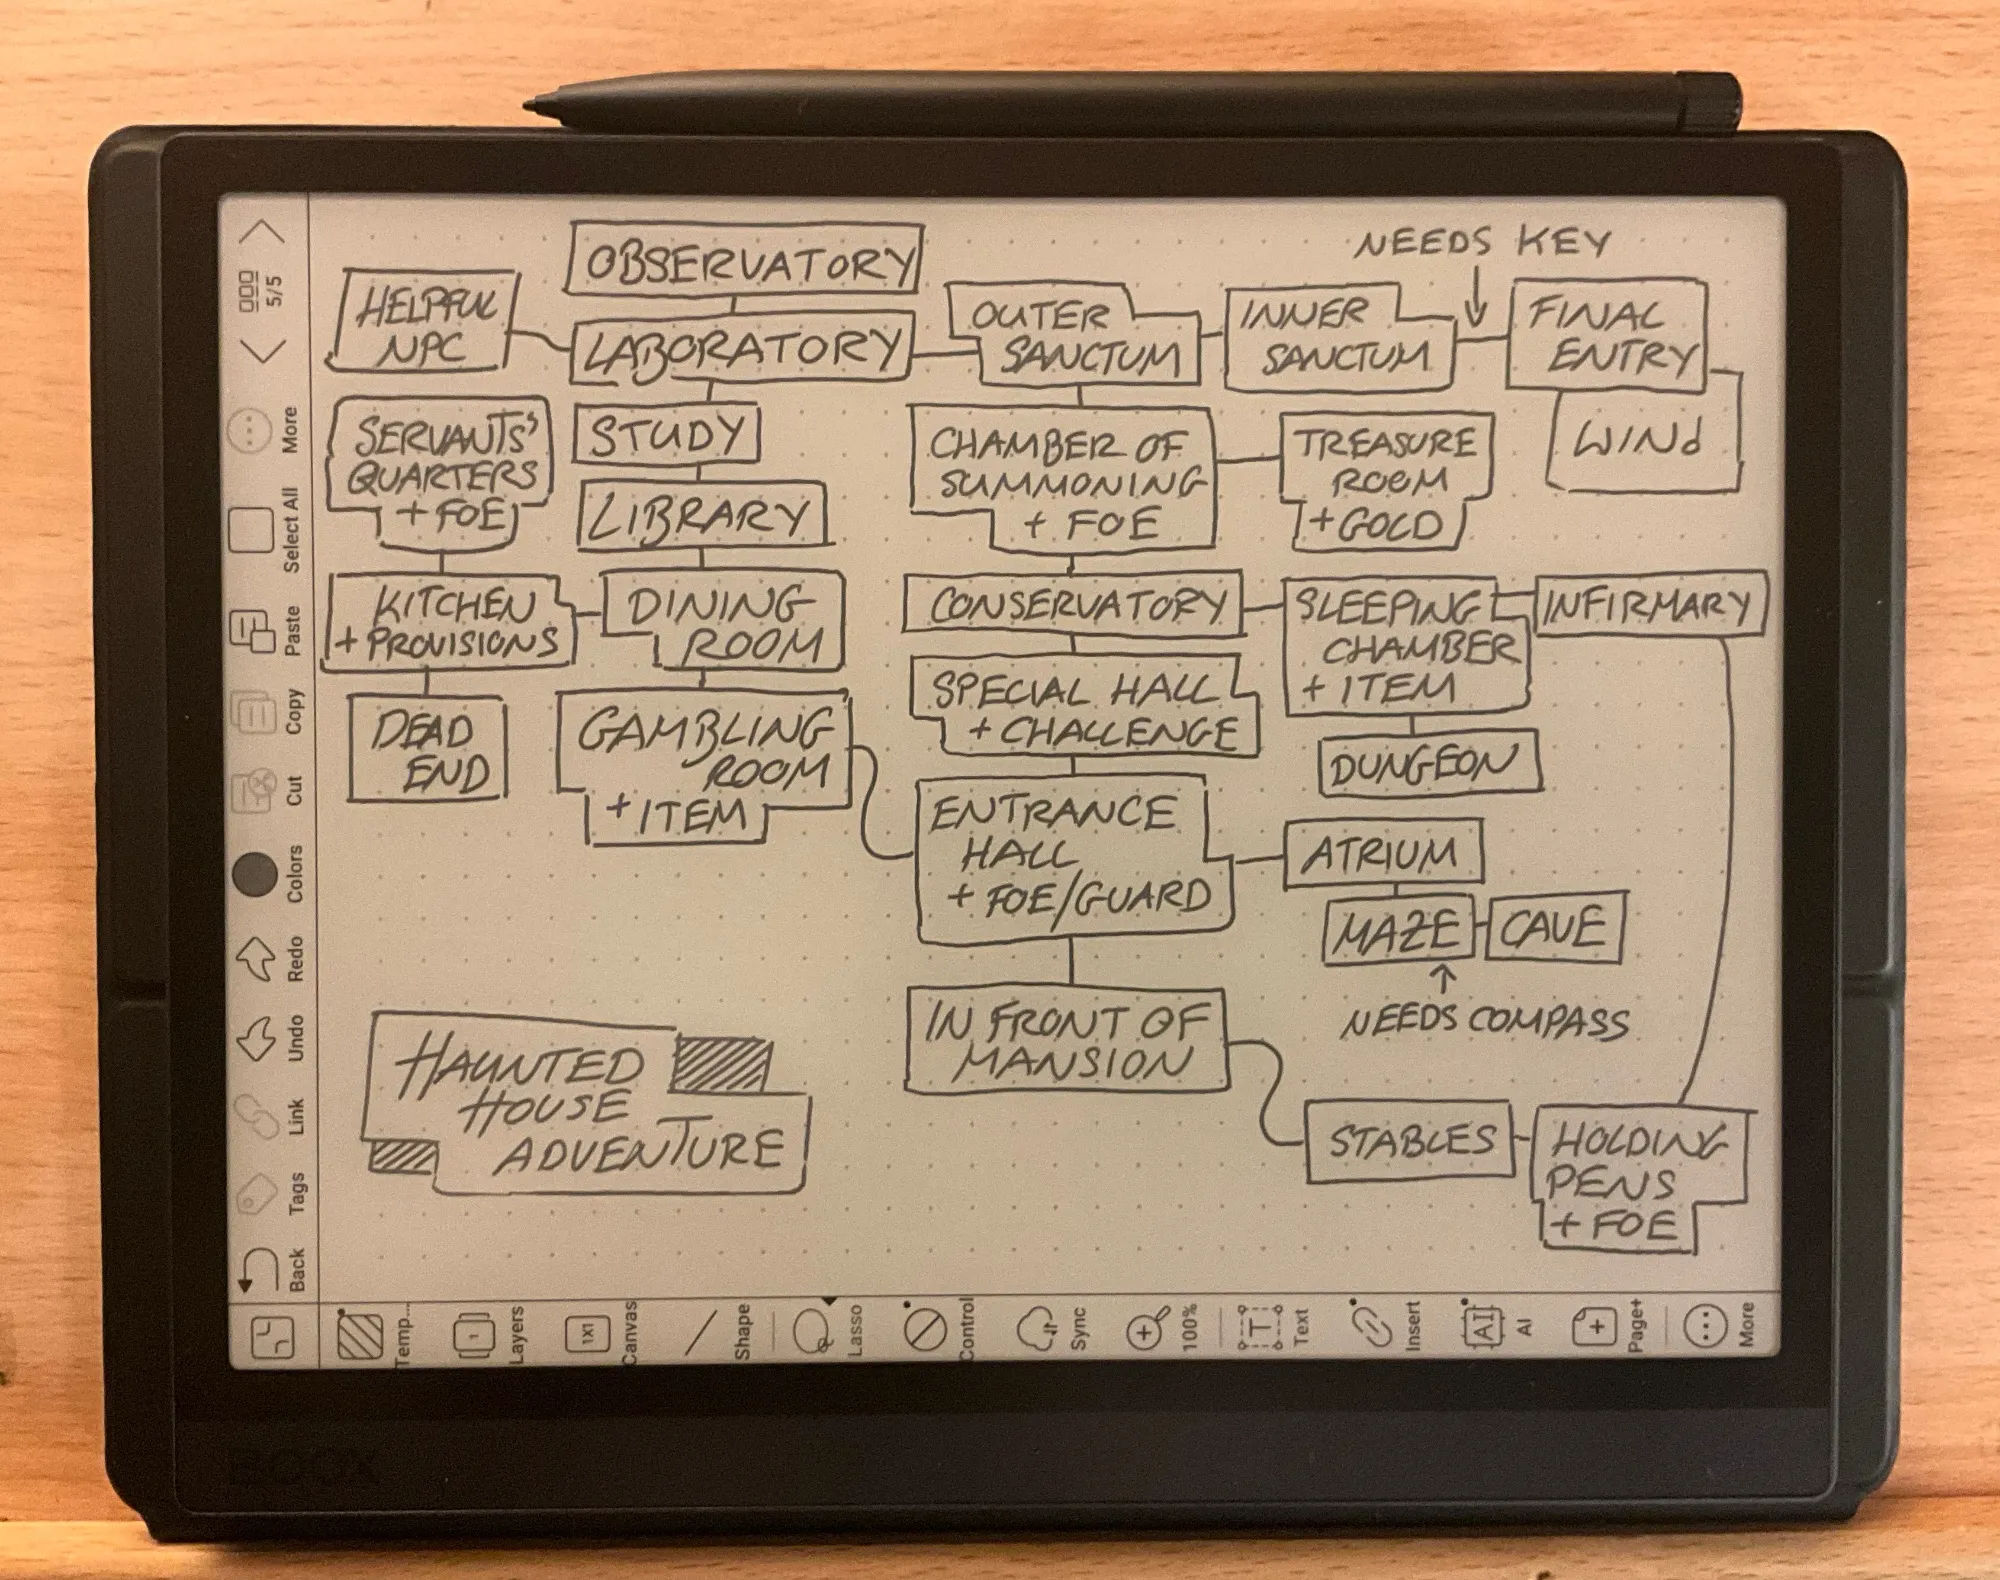 OBSERVATORY
NEEDS KEY
HELPFUL
NPC
LABORATORY
OUTER
SANCTUM
INNER
SANCTUM
FINAL
ENTRY
WINd
SERVANTS'
QUARTERS
+ FOE
STUDY
LIBRARY
CHAMBER OF
SUMMONING
+ FOE
TREASURE
ROOM
+ GOLD
KITCHEN
+ PROVISIONS
DINING
ROOM
CONSERVATORY
SLEEPING
CHAMBER
+ ITEM
INFIRMARY
DEAD
END
GAMBLING
ROOM
+ ITEM
SPECIAL HALL
+ CHALLENGE
DUNGEON
ENTRANCE
HALL
+ FOE/GUARD
ATRIUM
MAZE
CAVE
NEEDS COMPASS
IN FRONT OF
MANSION
HAUNTED
HOUSE
ADVENTURE
STABLES
HOLDING
PENS
+ FOE
5/5
More
Select All
Paste
Copy
Cut
Colors
Redo
Undo
Link
Tags
Back
Temp...
1
Layers
1X1
Canvas
Shape
Lasso
Control
Sync
100%
T
Text
Insert
AI
AI
Page+
More
BOOX